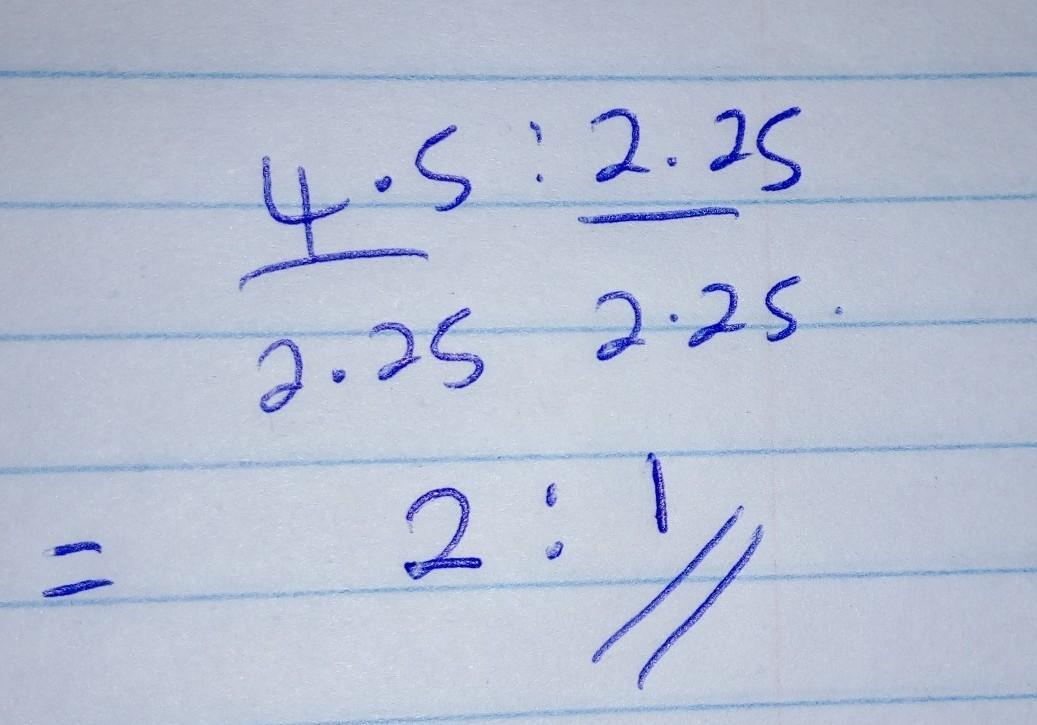 4.5 : 2.25
2.25 2.25.
= 2 : 1 //